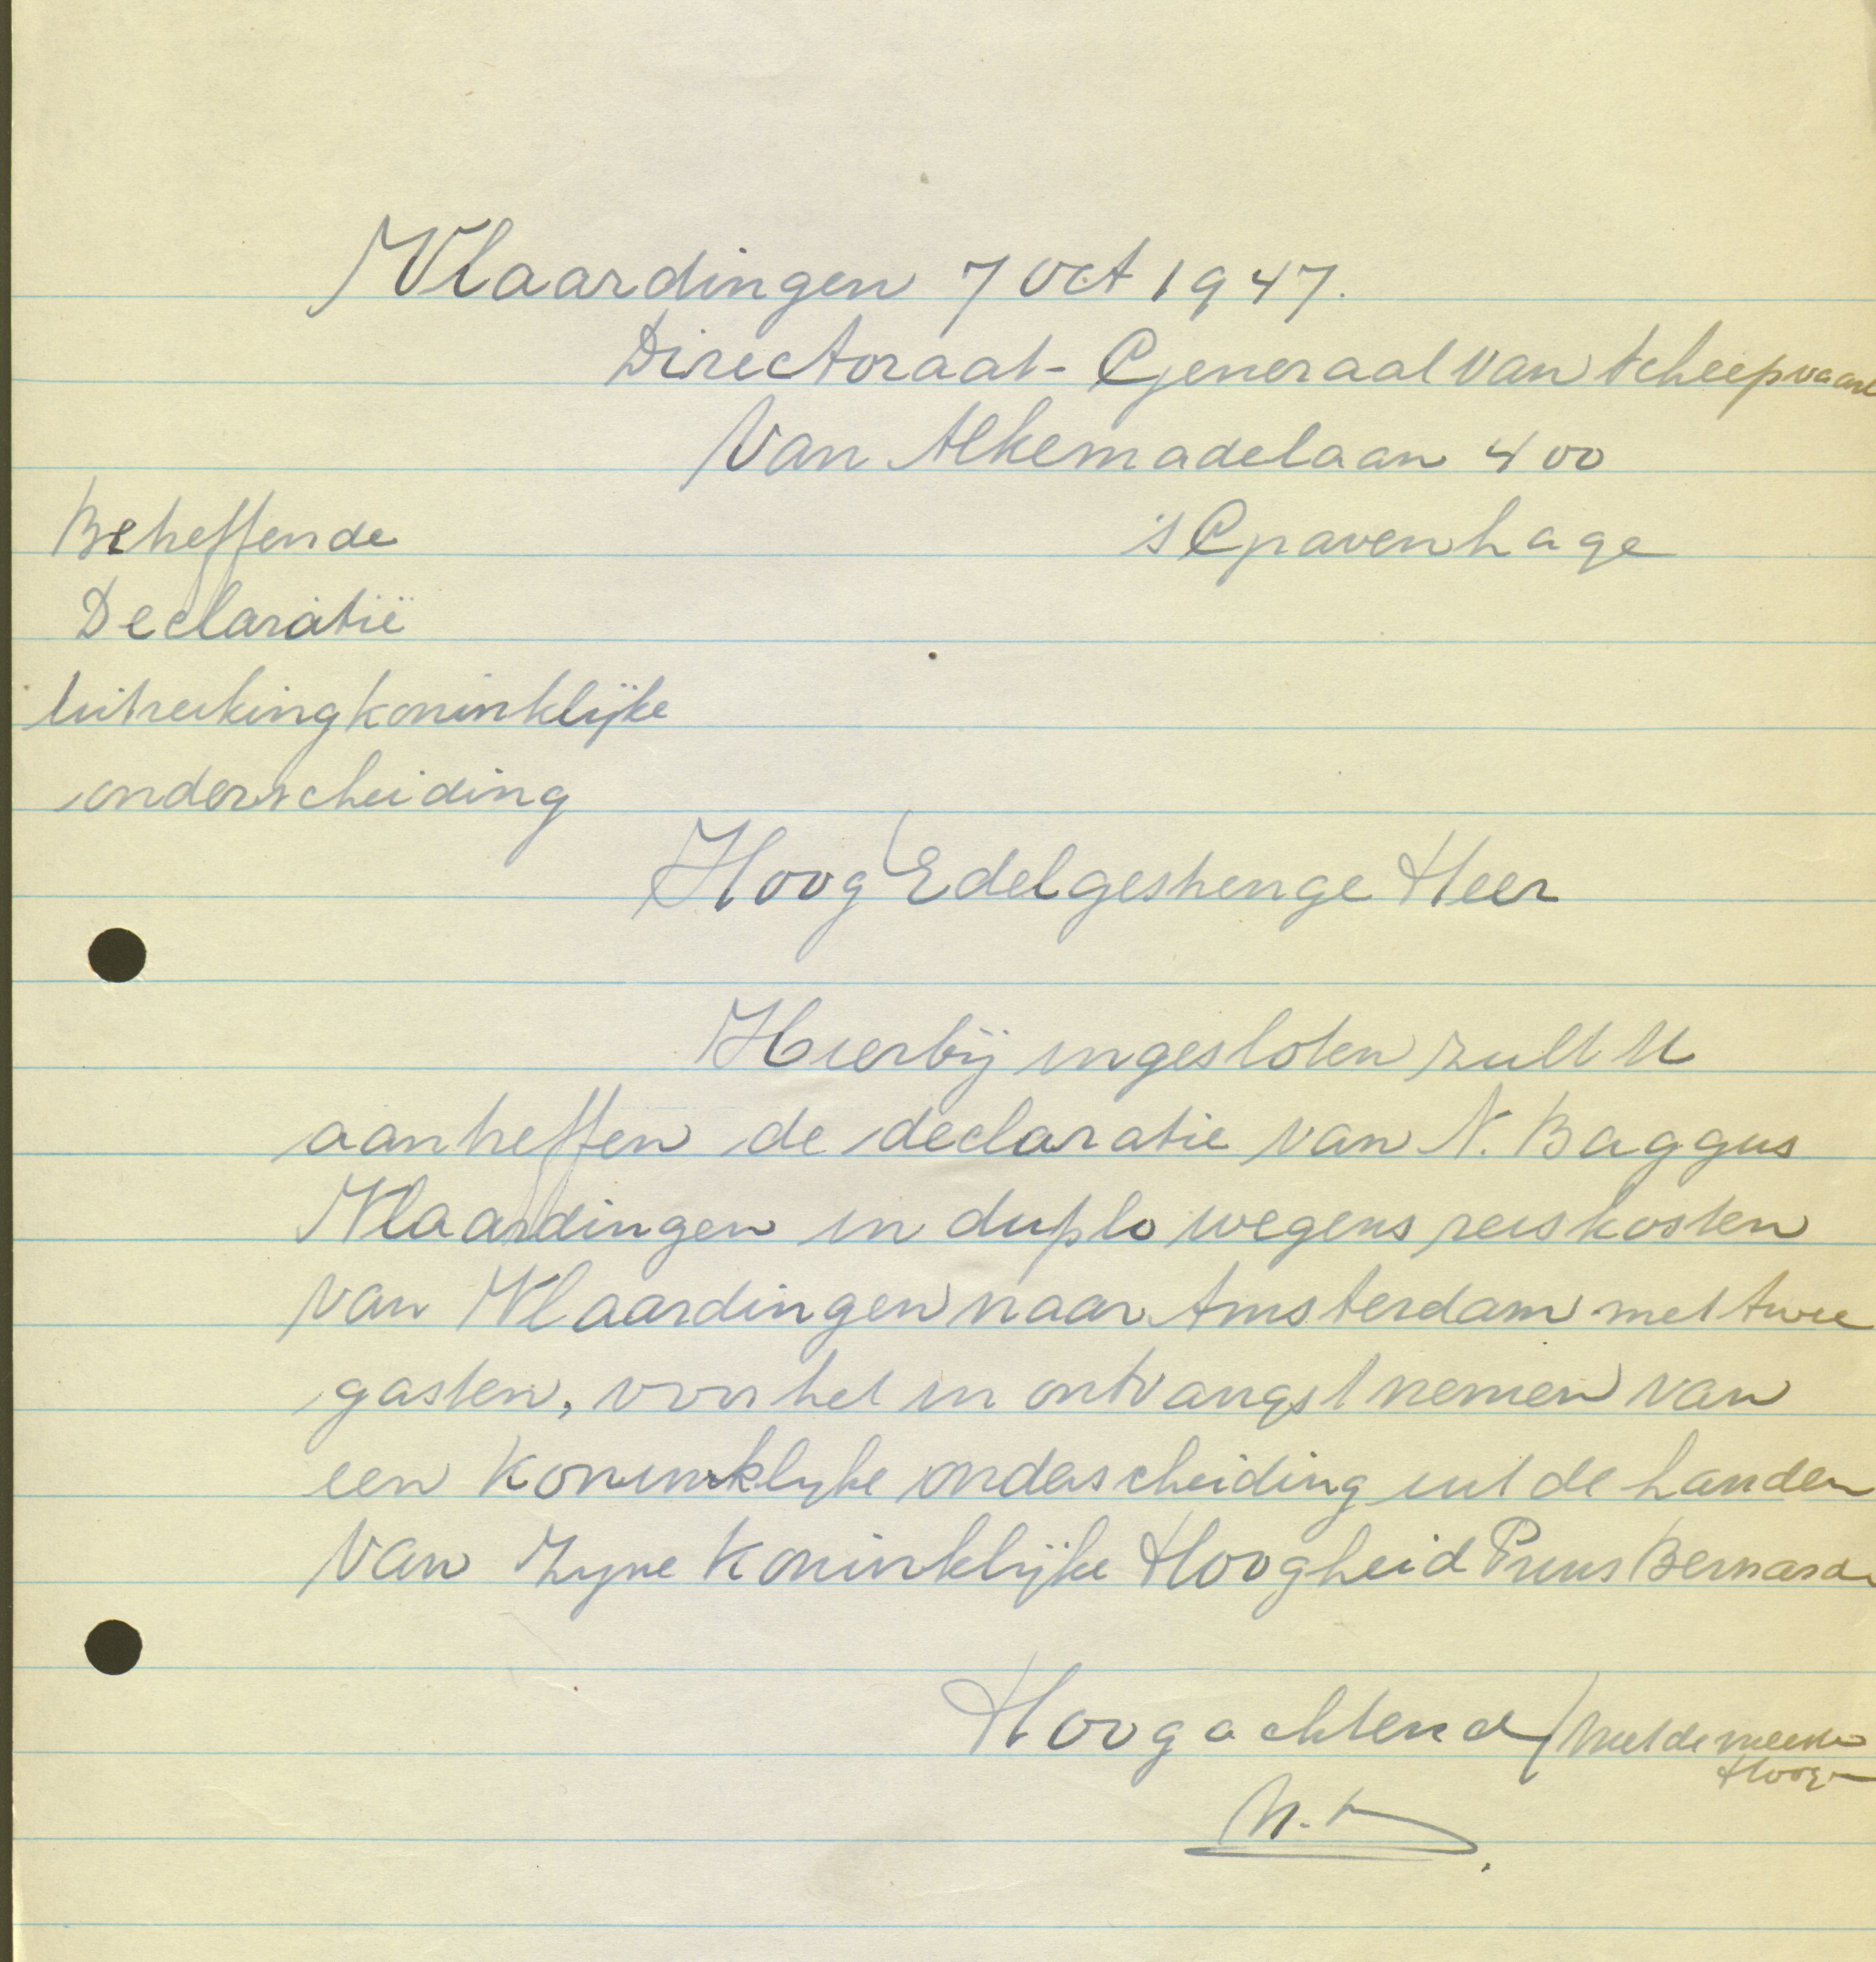 Vlaardingen 7 Oct 1947.
Directoraat-Generaal van Scheepvaart
Van Alkemadelaan 400
's Gravenhage
Betreffende
Declaratië
Uitreiking koninklijke
onderscheiding
Hoog Edelgestrenge Heer
Hierbij ingesloten zult U
aantreffen de declaratie van N. Baggus
Vlaardingen in duplo wegens reiskosten
van Vlaardingen naar Amsterdam met twee
gasten, voor het in ontvangst nemen van
een Koninklijke onderscheiding uit de handen
van Zyne Koninklijke Hoogheid Prins Bernard
Hoogachtend / Met de meeste
Hoog